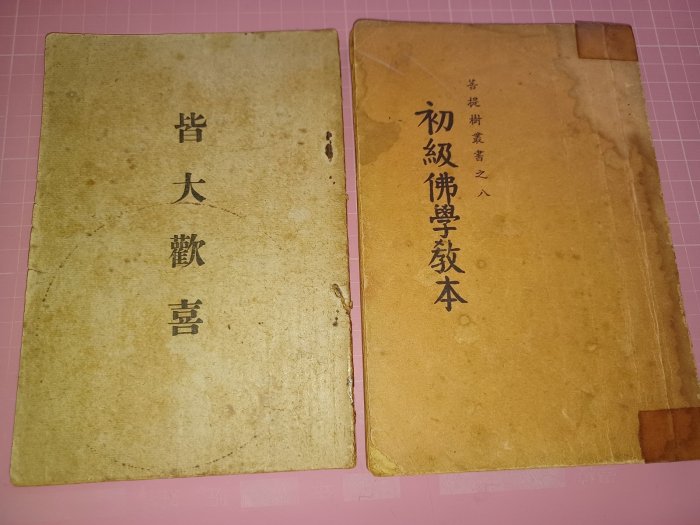 皆大歡喜
菩提樹叢書之八
初級佛學教本